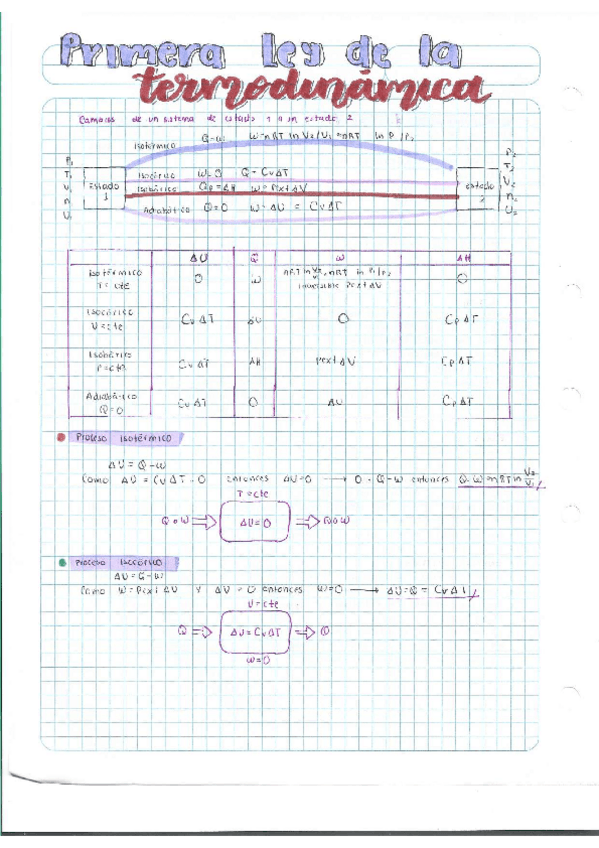 Primera ley de la
termodinámica
de un sistema de estado 1 a un estado 2
Isotérmico Q=W W=nRT ln V2/V1 = nRT ln P1/P2
P1
T1
V1
n1
U1
Estado 1
Isocórico W=0 Q = CvΔT
Isobárico Qp = ΔH W = PextΔV
Adiabático Q=0 W=ΔU = CvΔT
estado 2
P2
T2
V2
n2
U2
ΔU Q W ΔH
Isotérmico T = cte 0 W nRT ln V2/V1, nRT ln P1/P2 Pext ΔV 0
Isocórico V = cte CvΔT ΔU 0 CpΔT
Isobárico P = cte CvΔT ΔH Pext ΔV CpΔT
Adiabático Q=0 CvΔT 0 ΔU CpΔT
Proceso isotérmico
ΔU = Q-W
Como ΔU = CvΔT = 0 entonces ΔU=0 → 0 = Q-W entonces Q=W=nRT ln V2/V1
T = cte
Q o W ⇒ ΔU = 0 ⇒ Q o W
Proceso Isocórico
ΔU = Q-W
Como W = Pext ΔV y ΔV = 0 entonces W=0 → ΔU=Q = CvΔT
V = cte
Q ⇒ ΔU = CvΔT ⇒ Q
W=0